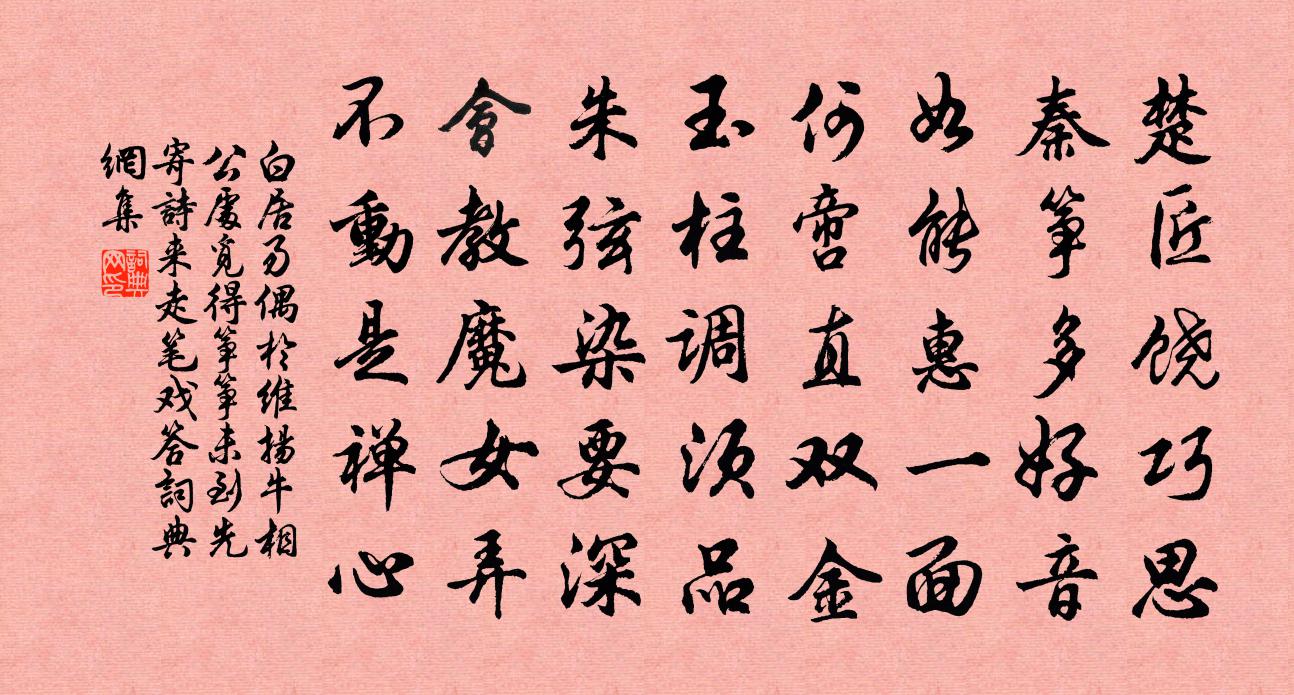 楚匠饶巧思
秦筝多好音
如能惠一面
何啻直双金
玉柱调须品
朱弦染要深
會教魔女弄
不動是禅心
白居易偶於维揚牛相
公處覓得筝筝未到先
寄詩来走笔戏答詞典
網集
詞典
网印